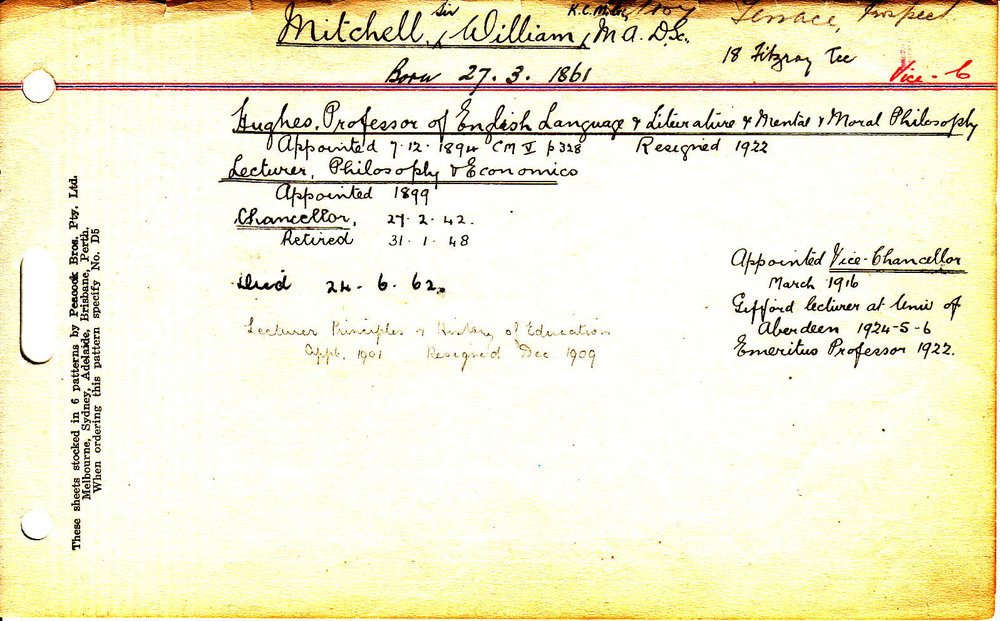 Sir K.C.M.G.
Terrace, Prospect
Mitchell, William, M.A. D.Sc.
18 Fitzroy Tce
Born 27.3.1861
Vice-C
Hughes, Professor of English Language & Literature & Mental & Moral Philosophy
Appointed 7.12.1894 CM V p328 Resigned 1922
Lecturer, Philosophy & Economics
Appointed 1899
Chancellor, 27.2.42.
Retired 31.1.48
Died 24.6.62.
Lecturer Principles & History of Education
Appt. 1901 Resigned Dec 1909
Appointed Vice-Chancellor
March 1916
Gifford lecturer at Univ of
Aberdeen 1924-5-6
Emeritus Professor 1922.
These sheets stocked in 6 patterns by Peacock Bros. Pty. Ltd.
Melbourne, Sydney, Adelaide, Brisbane, Perth.
When ordering this pattern specify No. D5